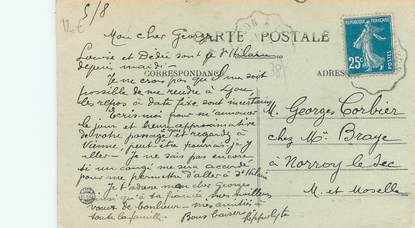 5/8
Mon cher Georges
CARTE POSTALE
Louise et Dédée sont à St Hilaire
depuis mardi.
CORRESPONDANCE
ADRESSE
Je ne crois pas qu'il me soit
possible de me rendre à Lyon,
les repos à date fixe sont incertains
Ecris moi pour m'annoncer
le jour et heure approximative
de votre passage à Lyon et regarde à
Vienne, peut être pourrais-je y
aller - Je ne sais pas encore
si un congé me sera accordé
pour me permettre d'aller à St Hilaire
Je t'adresse mon cher Georges
ainsi qu'à ta fiancée mes meilleurs
vœux de bonheur - mes amitiés à
toute la famille. Bons baisers
Hippolyte
REPUBLIQUE FRANÇAISE
25c
POSTES
M. Georges Corbier
chez Mr Braye
à Norroy le Sec
M. et Moselle